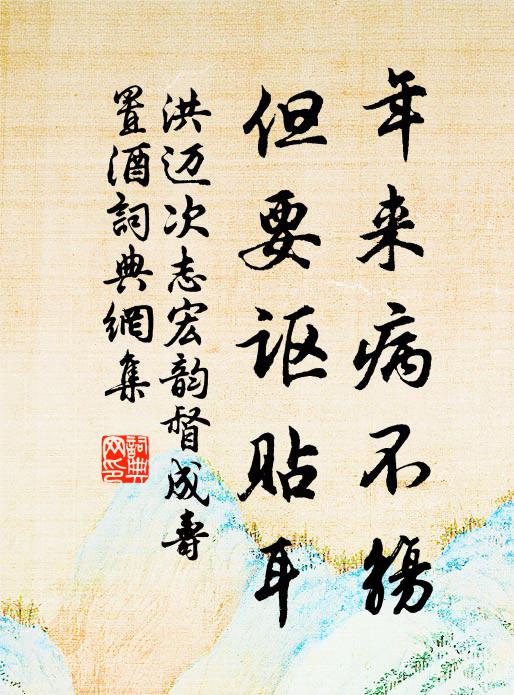 年来病不觴
但要讴贴耳
洪迈次志宏韵督成壽
置酒詞典網集
詞典
网印